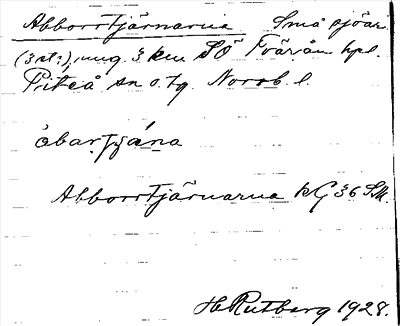 Abborrtjärnarna Små sjöar
(3 st.), ung. 3 km SÖ Tvärån hpl.
Piteå sn o. tg. Norrb. l.
åbartjǻna
Abborrtjärnarna kG 36 S.M.
H Rutberg 1928.